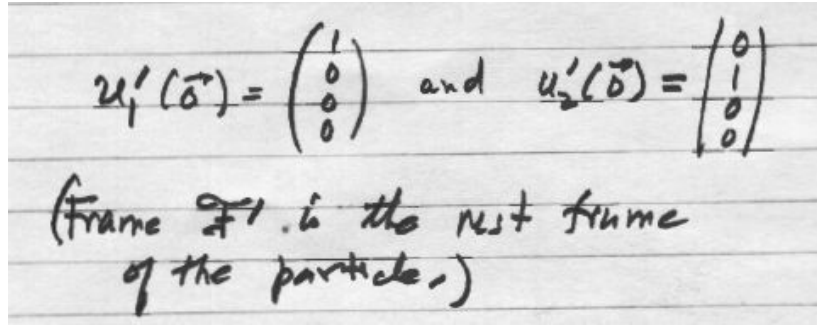 u₁'(0⃗) = (1 0 0 0) and u₂'(0⃗) = (0 1 0 0)
(Frame ℱ' is the rest frame
of the particle.)